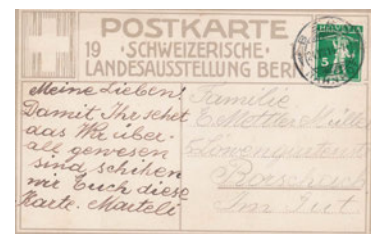 POSTKARTE
19 · SCHWEIZERISCHE ·
LANDESAUSSTELLUNG BERN
HELVETIA
5
Meine Lieben!
Damit Ihr sehet
das Wir über-
all gewesen
sind schiken
wir Euch diese
Karte. Marteli
Familie
E. Mettler-Müller
Löwengarten
Rorschach